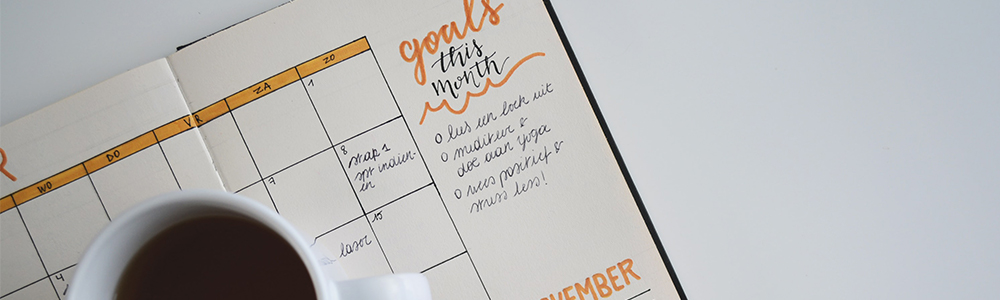 R
WO DO VR ZA ZO
1
4
7
8
stap 1
indien-
en
15
goals
this
month
o lees een boek uit
o mediteer &
doe aan yoga
o wees positief &
stress less!
VEMBER